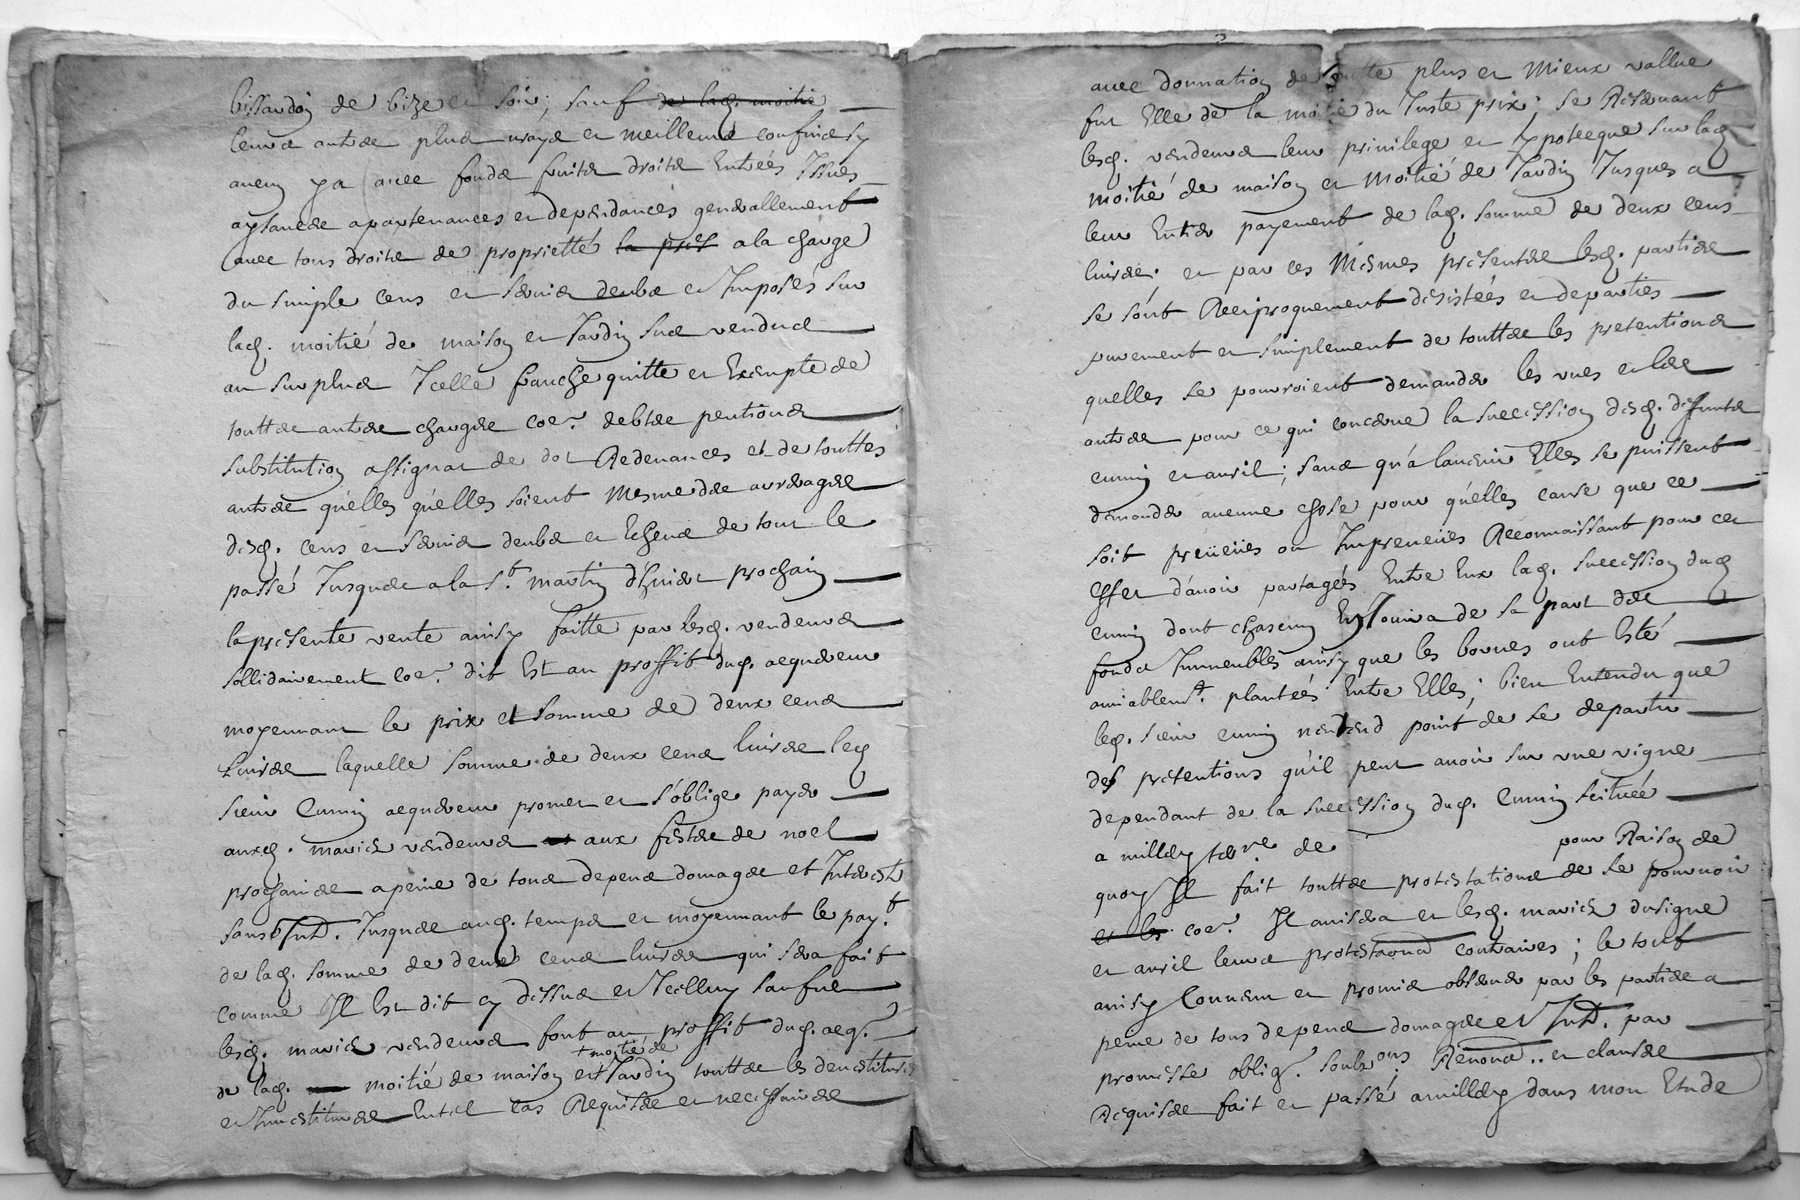 de bize et soir; sauf de lad. moitié
leurs autres plus vrays et meilleurs confins sy
aucun y a avec fonds fruits droits Entrées Issues
aysances apartenances et dependances generallement
avec tous droits de proprietté la pres a la charge
du simple cens et servis deubs et Imposés sur
lad. moitié de maison et Jardin sus vendus
au surplus Icelle franche quitte et Exempte de
touttes autres charges coe. debtes pentions
substitution assignat de dot Redevances et de touttes
autres quelles quelles soient mesme des arrerages
desd. cens et servis deubs et Echeus de tout le
passé Jusques a la St. martin dhiver prochain
la presente vente ainsy faitte par lesd. vendeurs
sollidairement coe. dit Est au proffit dud. acquereur
moyennant le prix et somme de deux cens
Livres laquelle somme de deux cens livres led
sieur Cunin acquereur promet et s'oblige payer
auxd. mariés vendeurs aux festes de noel
prochaines a peine de tous depens domages et Interests
sans Int. Jusques aud. temps et moyennant le payt.
de lad. somme de deux cens livres qui sera fait
comme Il Est dit cy dessus et Icelluy sauf les
lesd. mariés vendeurs font au proffit dud. acqr.
de lad. moitié de maison et + moitié de Jardin touttes les devestitures
et Investitures Entel cas Requises et necessaires
avec donnation de toutte plus et Mieux vallue
fut Elle de la moitié du Juste prix; se Reservant
lesd. vendeurs leur privilege et hypotecque sur lad
moitié de maison et Moitié de Jardin Jusques a
leur Entier payement de lad. somme de deux cens
livres; et par ces Mesmes presentes lesd. parties
se sont Reciproquement desistées et departies
purement et simplement de touttes les pretentions
quelles se pouvoient demander les unes et les
autres pour ce qui concerne la succession desd. deffunts
cunin et avril; sans qu'a lavenir Elles se puissent
demander aucune chose pour quelles cause que ce
soit preveües ou Impreveües Reconnaissant pour cet
Effet d'avoir partagés Entre Eux lad. succession dud
cunin dont chascun Jouira de sa part des
fonds Immeubles ainsy que les bornes ont Esté
amiablemt. plantées Entre Elles; bien Entendu que
led. sieur cunin n'entend point de se departir
des pretentions qu'il peut avoir sur une vigne
dependant de la succession dud. Cunin scituée
a milley terre. de pour Raison de
quoy Il fait touttes protestations de se pourvoir
et les coe. Il avisera et lesd. mariés dusigne
et avril leurs protestaons contraires; le tout
ainsy Convenu et promis observer par les parties a
peine de tous depens domages et Int. par
promesse oblig. soubzons Renond.. et clauses
Requises fait et passé a milley dans mon Etude